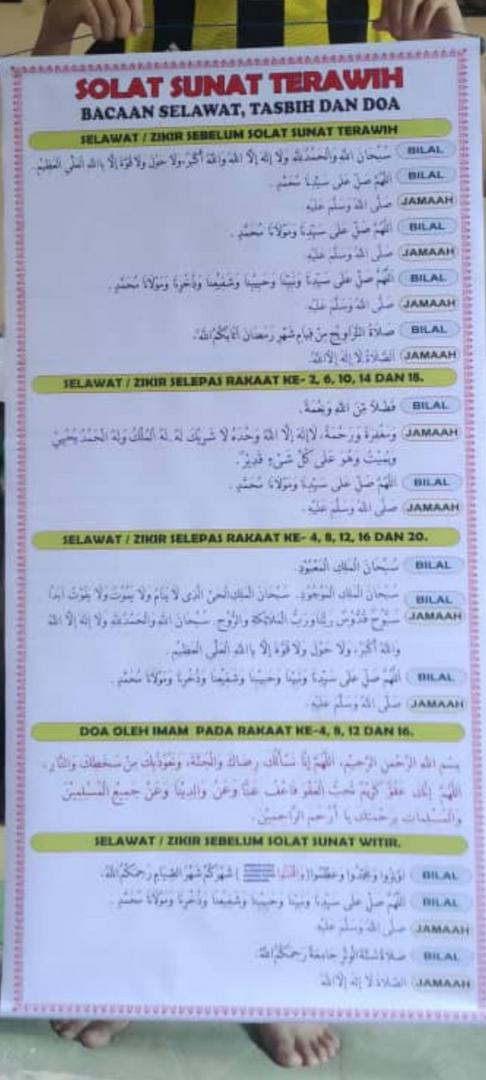 SOLAT SUNAT TERAWIH
BACAAN SELAWAT, TASBIH DAN DOA
SELAWAT / ZIKIR SEBELUM SOLAT SUNAT TERAWIH
BILAL سُبْحَانَ اللهِ وَالْحَمْدُ لِلّٰهِ وَلَا إِلٰهَ إِلَّا اللهُ وَاللهُ أَكْبَرُ، وَلَا حَوْلَ وَلَا قُوَّةَ إِلَّا بِاللهِ الْعَلِيِّ الْعَظِيْمِ.
BILAL اَللّٰهُمَّ صَلِّ عَلَى سَيِّدِنَا مُحَمَّدٍ.
JAMAAH صَلَّى اللهُ وَسَلَّمَ عَلَيْهِ
BILAL اَللّٰهُمَّ صَلِّ عَلَى سَيِّدِنَا وَمَوْلَانَا مُحَمَّدٍ.
JAMAAH صَلَّى اللهُ وَسَلَّمَ عَلَيْهِ
BILAL اَللّٰهُمَّ صَلِّ عَلَى سَيِّدِنَا وَنَبِيِّنَا وَحَبِيْبِنَا وَشَفِيْعِنَا وَذُخْرِنَا وَمَوْلَانَا مُحَمَّدٍ.
JAMAAH صَلَّى اللهُ وَسَلَّمَ عَلَيْهِ
BILAL صَلَاةُ التَّرَاوِيْحِ مِنْ قِيَامِ شَهْرِ رَمَضَانَ أَثَابَكُمُ اللهُ.
JAMAAH اَلصَّلَاةُ لَا إِلٰهَ إِلَّا اللهُ
SELAWAT / ZIKIR SELEPAS RAKAAT KE- 2, 6, 10, 14 DAN 18.
BILAL فَضْلًا مِّنَ اللهِ وَنِعْمَةً.
JAMAAH وَمَغْفِرَةً وَرَحْمَةً، لَا إِلٰهَ إِلَّا اللهُ وَحْدَهُ لَا شَرِيْكَ لَهُ، لَهُ الْمُلْكُ وَلَهُ الْحَمْدُ يُحْيِيْ
وَيُمِيْتُ وَهُوَ عَلَى كُلِّ شَيْءٍ قَدِيْرٌ.
BILAL اَللّٰهُمَّ صَلِّ عَلَى سَيِّدِنَا وَمَوْلَانَا مُحَمَّدٍ.
JAMAAH صَلَّى اللهُ وَسَلَّمَ عَلَيْهِ.
SELAWAT / ZIKIR SELEPAS RAKAAT KE- 4, 8, 12, 16 DAN 20.
BILAL سُبْحَانَ الْمَلِكِ الْمَعْبُوْدِ.
BILAL سُبْحَانَ الْمَلِكِ الْمَوْجُوْدِ. سُبْحَانَ الْمَلِكِ الْحَيِّ الَّذِى لَا يَنَامُ وَلَا يَمُوْتُ وَلَا يَفُوْتُ أَبَدًا
JAMAAH سُبُّوْحٌ قُدُّوْسٌ رَبُّنَا وَرَبُّ الْمَلَائِكَةِ وَالرُّوْحِ. سُبْحَانَ اللهِ وَالْحَمْدُ لِلّٰهِ وَلَا إِلٰهَ إِلَّا اللهُ
وَاللهُ أَكْبَرُ، وَلَا حَوْلَ وَلَا قُوَّةَ إِلَّا بِاللهِ الْعَلِيِّ الْعَظِيْمِ.
BILAL اَللّٰهُمَّ صَلِّ عَلَى سَيِّدِنَا وَنَبِيِّنَا وَحَبِيْبِنَا وَشَفِيْعِنَا وَذُخْرِنَا وَمَوْلَانَا مُحَمَّدٍ.
JAMAAH صَلَّى اللهُ وَسَلَّمَ عَلَيْهِ.
DOA OLEH IMAM PADA RAKAAT KE-4, 8, 12 DAN 16.
بِسْمِ اللهِ الرَّحْمٰنِ الرَّحِيْمِ، اَللّٰهُمَّ إِنَّا نَسْأَلُكَ رِضَاكَ وَالْجَنَّةَ، وَنَعُوْذُبِكَ مِنْ سَخَطِكَ وَالنَّارِ،
اَللّٰهُمَّ إِنَّكَ عَفُوٌّ كَرِيْمٌ تُحِبُّ الْعَفْوَ فَاعْفُ عَنَّا وَعَنْ وَالِدِيْنَا وَعَنْ جَمِيْعِ الْمُسْلِمِيْنَ
وَالْمُسْلِمَاتِ بِرَحْمَتِكَ يَا أَرْحَمَ الرَّاحِمِيْنَ.
SELAWAT / ZIKIR SEBELUM SOLAT SUNAT WITIR.
BILAL أَوْتِرُوْا وَمَجِّدُوْا وَعَظِّمُوْا شَهْرَكُمْ شَهْرَ الصِّيَامِ رَحِمَكُمُ اللهُ.
BILAL اَللّٰهُمَّ صَلِّ عَلَى سَيِّدِنَا وَنَبِيِّنَا وَحَبِيْبِنَا وَشَفِيْعِنَا وَذُخْرِنَا وَمَوْلَانَا مُحَمَّدٍ.
JAMAAH صَلَّى اللهُ وَسَلَّمَ عَلَيْهِ
BILAL صَلَاةَ سُنَّةَ الْوِتْرِ جَامِعَةً رَحِمَكُمُ اللهُ.
JAMAAH اَلصَّلَاةُ لَا إِلٰهَ إِلَّا اللهُ